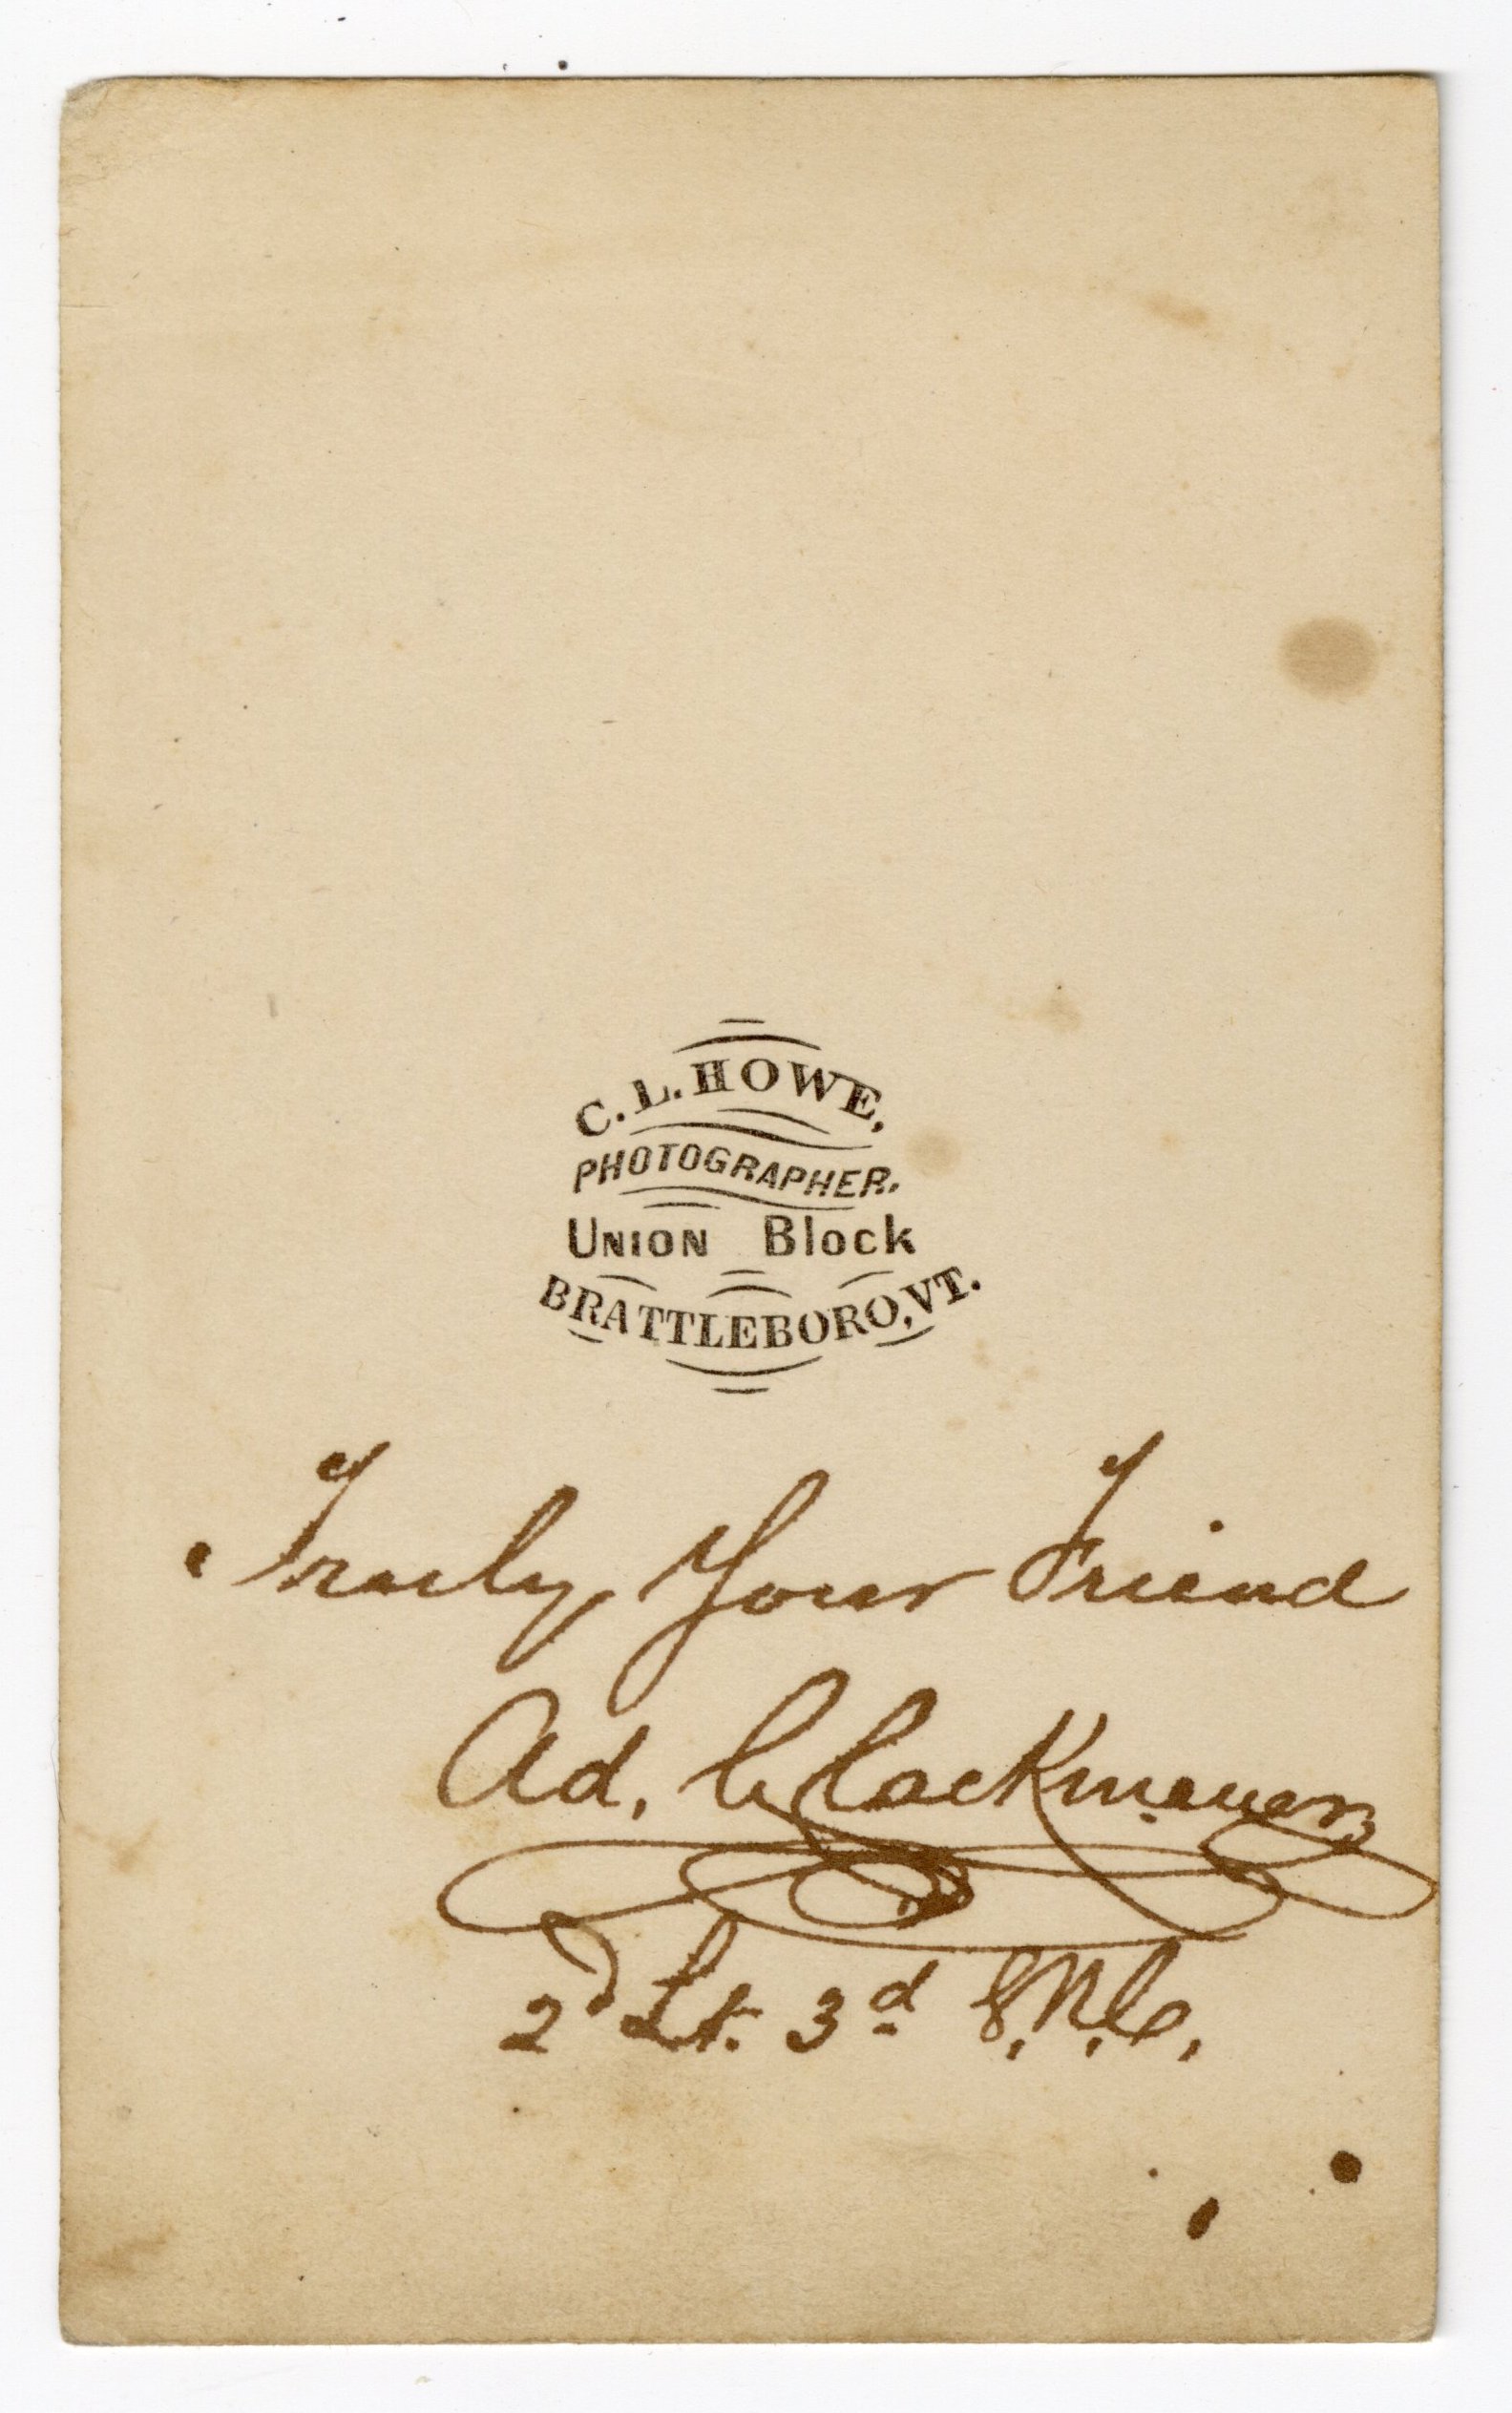 C. L. HOWE,
PHOTOGRAPHER.
UNION Block
BRATTLEBORO, VT.
Truly Your Friend
Ad.
2d Lt. 3d